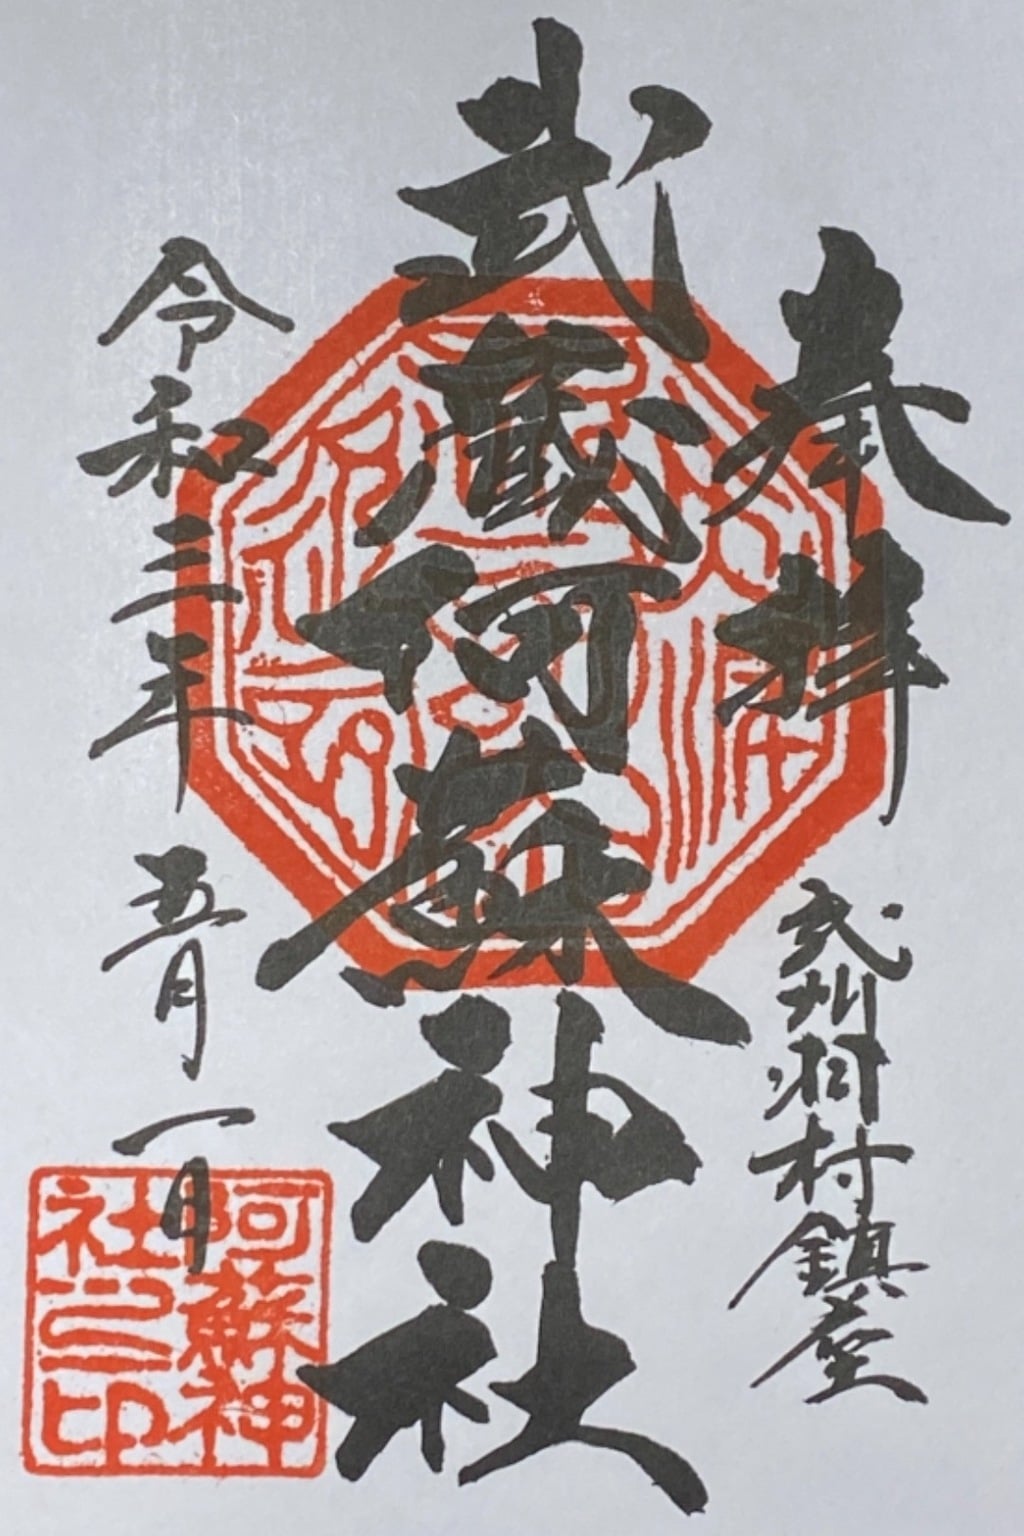 奉拝
武州羽村鎮座
武蔵阿蘇神社
令和三年 五月一日
阿蘇神
社之印